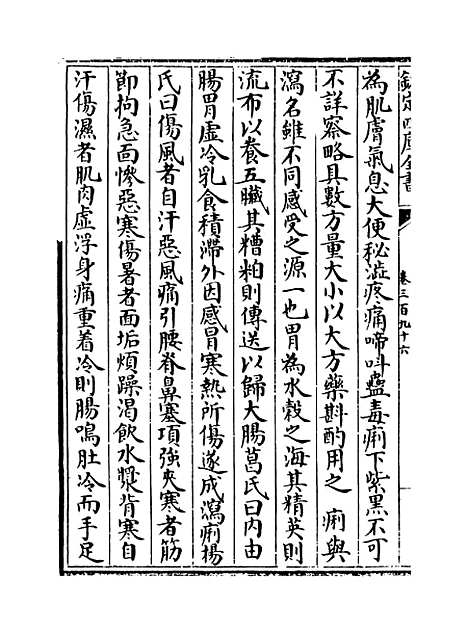 欽定四庫全書
卷三百九十六
為肌膚氣息大便秘澁疼痛啼呌蠱毒痢下紫黑不可
不詳察略具數方量大小以大方藥斟酌用之 痢與
瀉名雖不同感受之源一也胃為水穀之海其精英則
流布以養五臟其糟粕則傳送以歸大腸葛氏曰内由
腸胃虛冷乳食積滯外因感冒寒熱所傷遂成瀉痢楊
氏曰傷風者自汗惡風痛引腰脊鼻塞項強夾寒者筋
節拘急面慘惡寒傷暑者面垢煩躁渴飲水漿背寒自
汗傷濕者肌肉虛浮身痛重着冷則腸鳴肚冷而手足